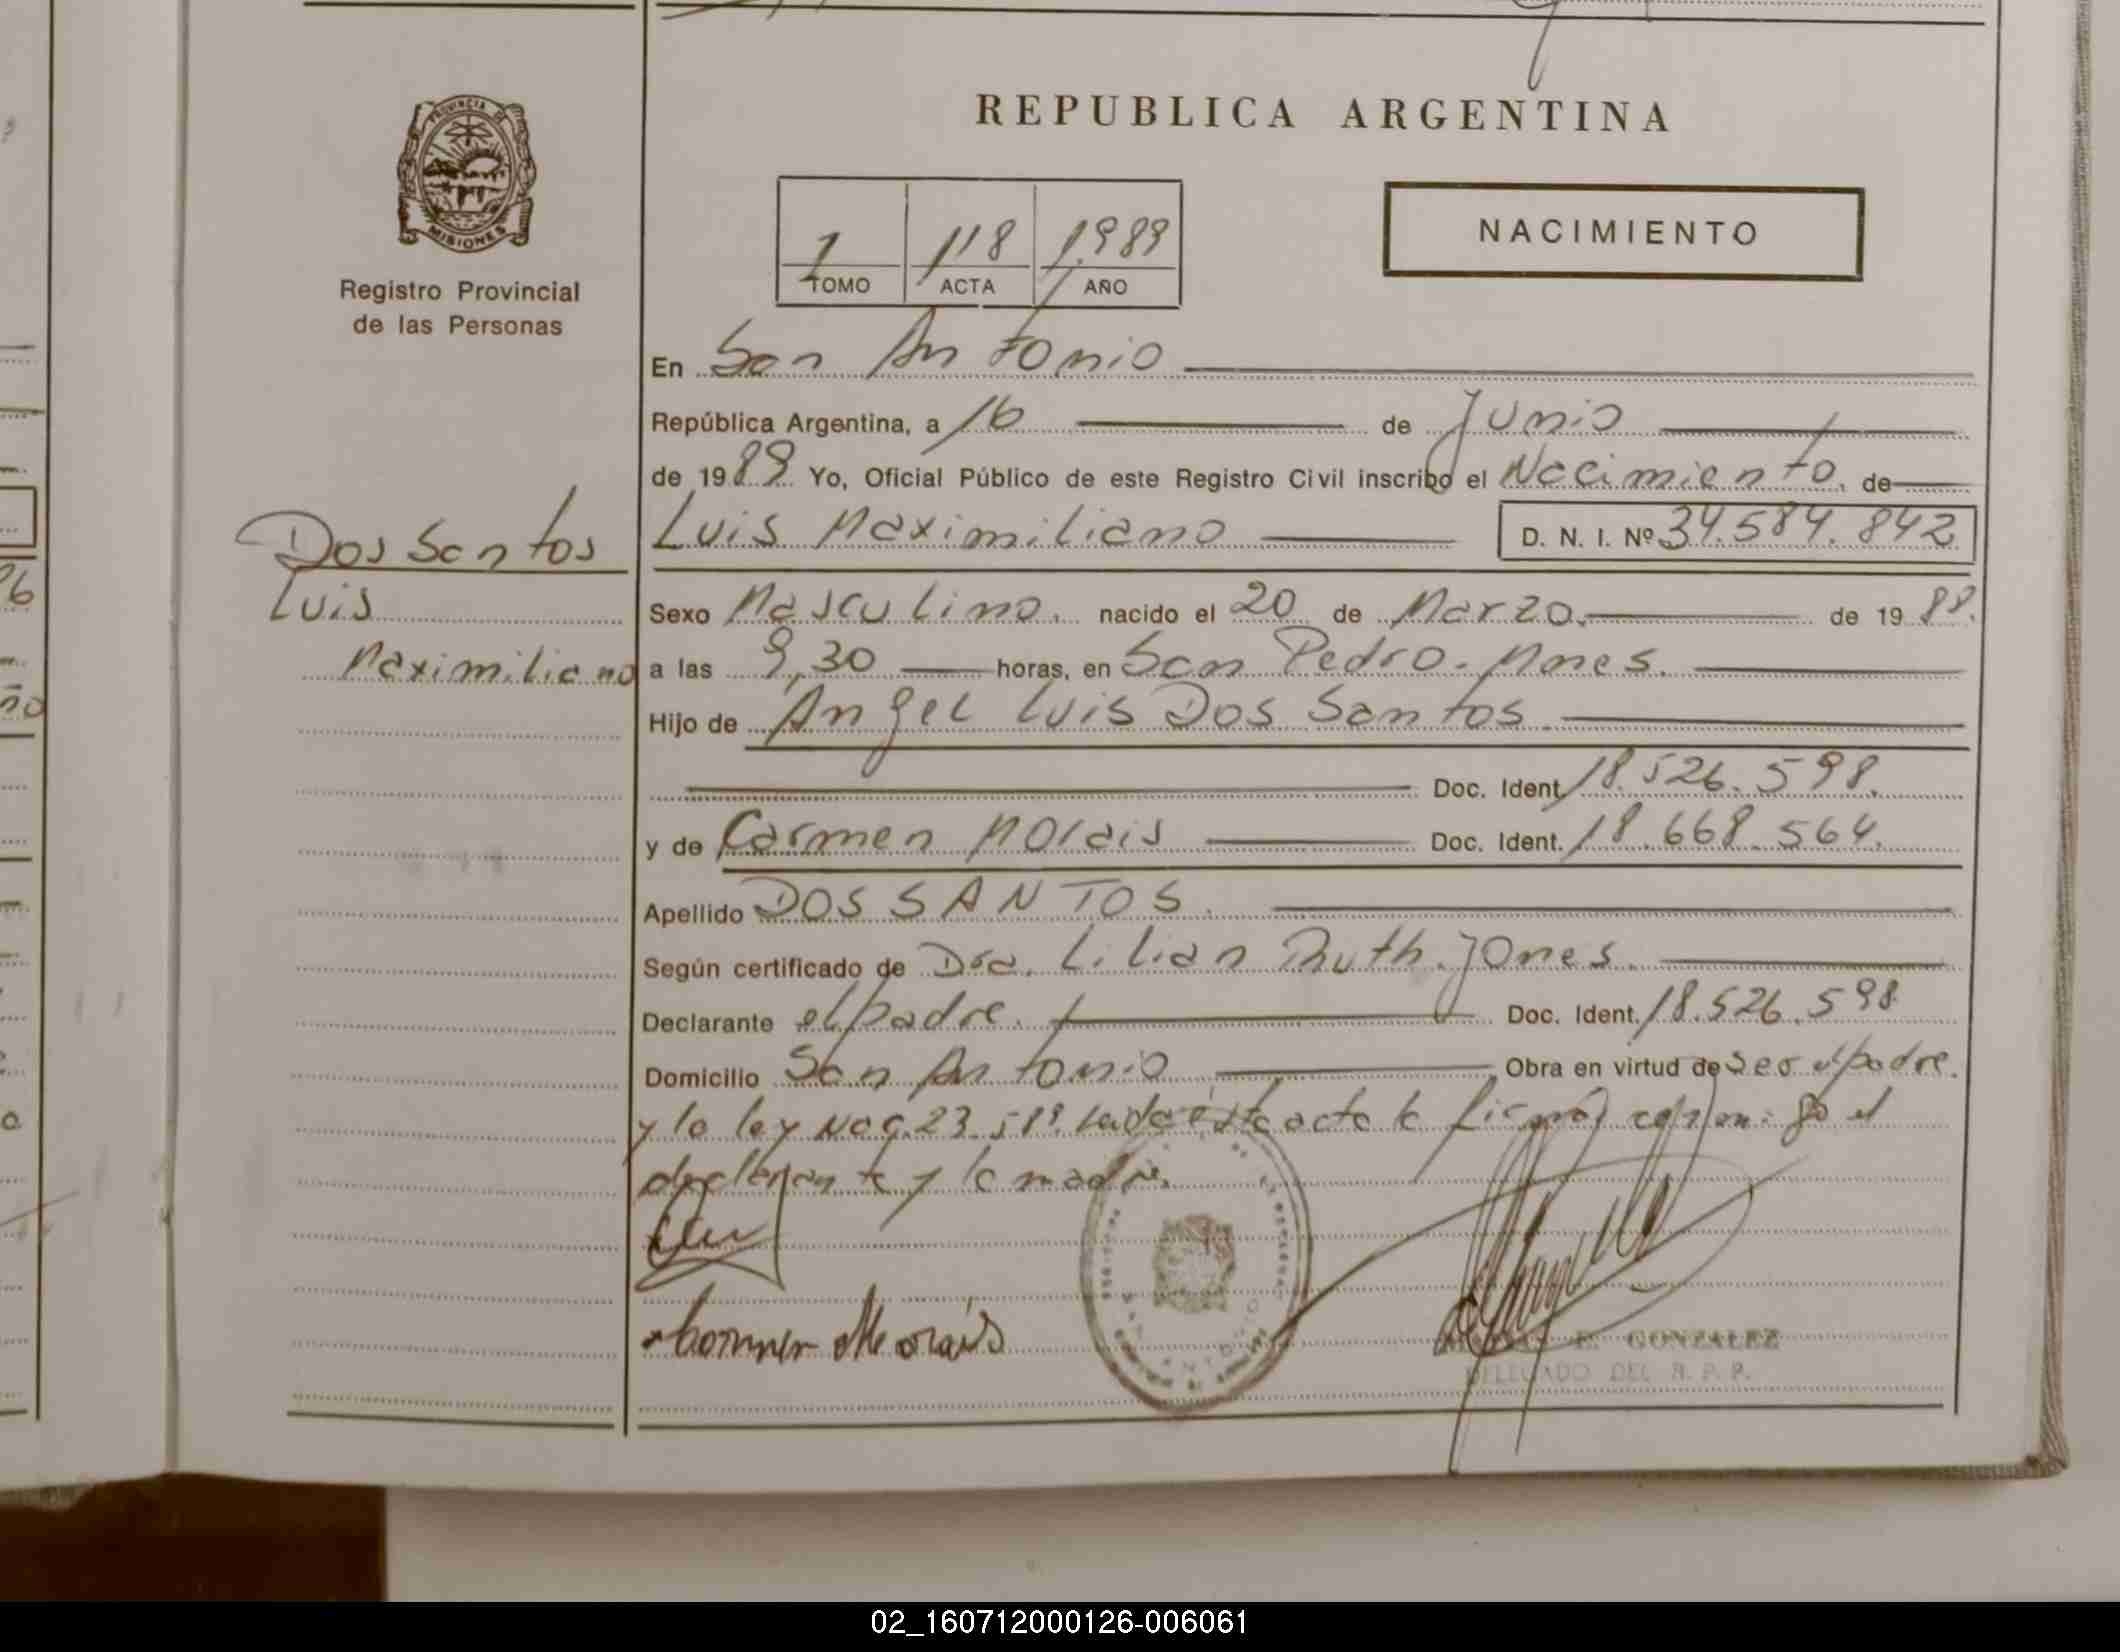 PROVINCIA DE
MISIONES
Registro Provincial
de las Personas
REPUBLICA ARGENTINA
1 118 1989
TOMO ACTA AÑO
NACIMIENTO
En San Antonio
República Argentina, a 16 de Junio
de 1989 Yo, Oficial Público de este Registro Civil inscribo el Nacimiento. de
Dos Santos
Luis
Maximiliano
Luis Maximiliano D. N. I. Nº 34.584.842
Sexo Masculino. nacido el 20 de Marzo. de 1988.
a las 9,30 horas, en San Pedro. Mnes.
Hijo de Angel Luis Dos Santos
Doc. Ident. 18.526.598.
y de Carmen Morais Doc. Ident. 18.668.564.
Apellido DOS SANTOS.
Según certificado de Dra. Lilian Ruth Jones.
Declarante el padre. Doc. Ident. 18.526.598
Domicilio San Antonio Obra en virtud de ser el padre.
y la ley 23. acta la firman conmigo el
declarante y la madre.
Carmen Morais
E. GONZALEZ
DELEGADO DEL R. P. P.
02_160712000126-006061